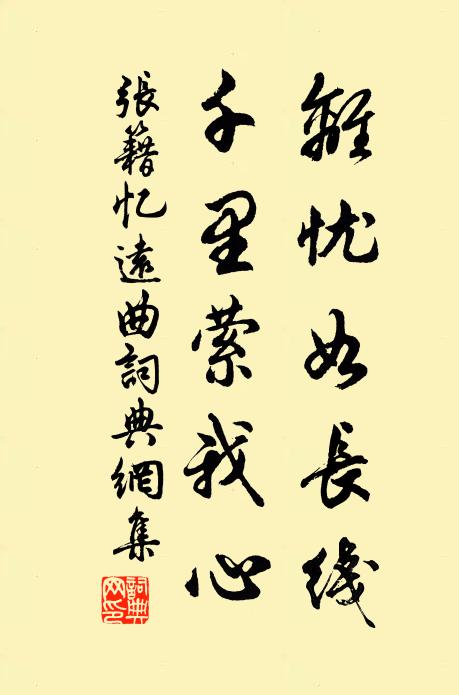 離忧如長綫
千里縈我心
張籍忆遠曲詞典網集
詞典网印